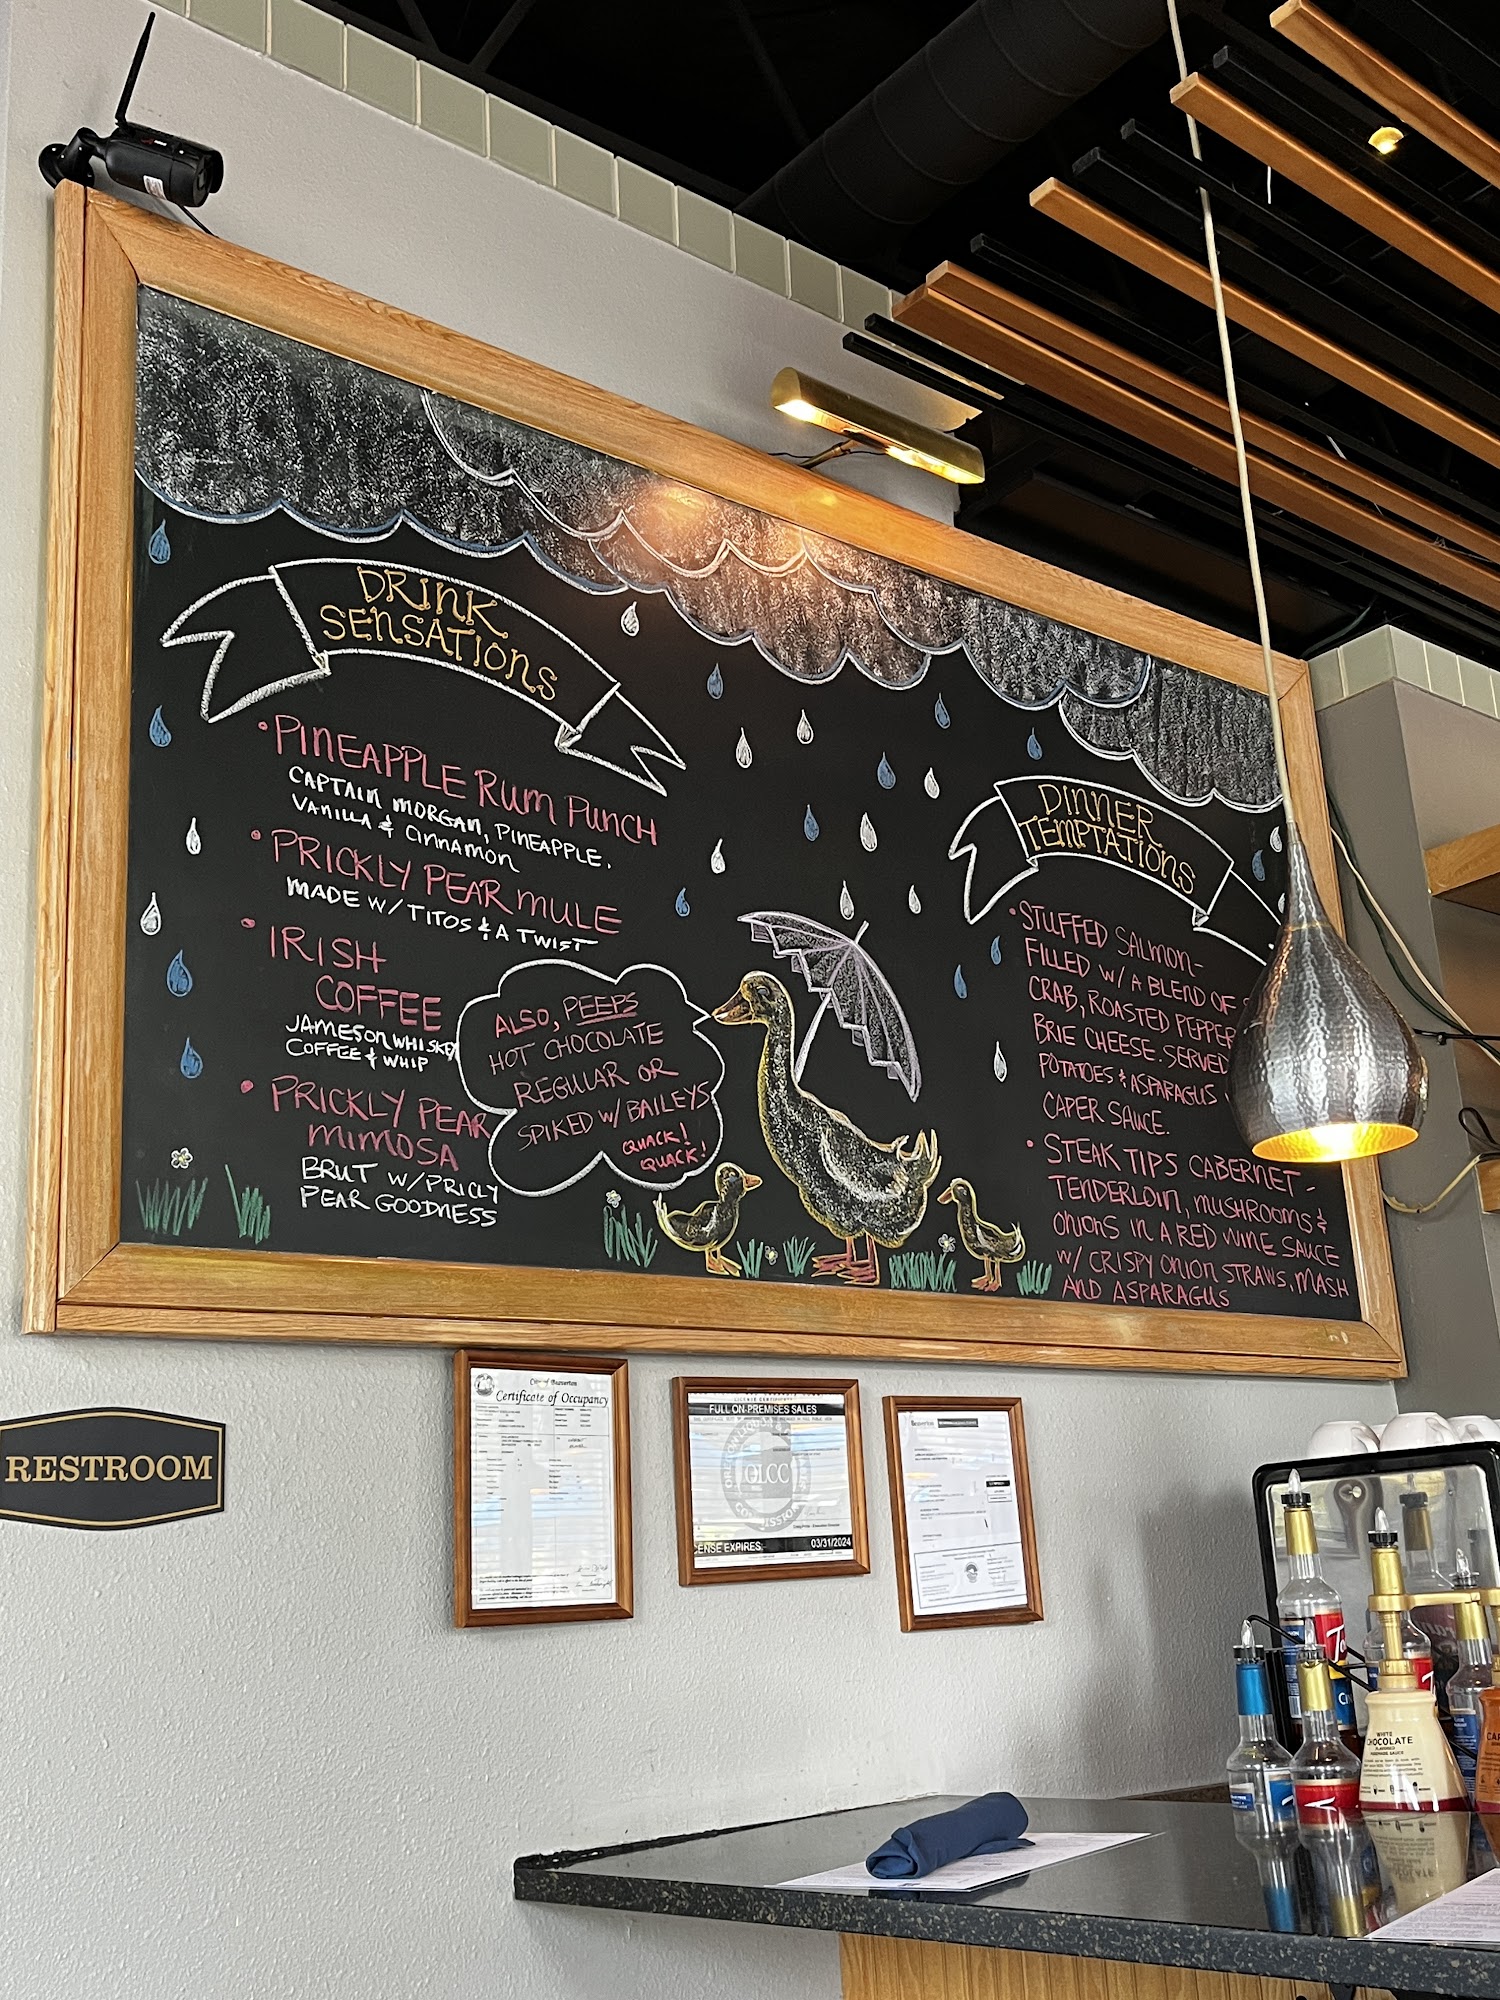 DRINK
SENSATIONS
• PINEAPPLE RUM PUNCH
CAPTAIN MORGAN, PINEAPPLE,
VANILLA & CINNAMON
• PRICKLY PEAR MULE
MADE W/ TITOS & A TWIST
• IRISH
COFFEE
JAMESON WHISKEY
COFFEE & WHIP
• PRICKLY PEAR
MIMOSA
BRUT W/ PRICLY
PEAR GOODNESS
ALSO, PEEPS
HOT CHOCOLATE
REGULAR OR
SPIKED W/ BAILEYS
QUACK!
QUACK!
DINNER
TEMPTATIONS
• STUFFED SALMON-
FILLED W/ A BLEND OF
CRAB, ROASTED PEPPER
BRIE CHEESE. SERVED
POTATOES & ASPARAGUS
CAPER SAUCE.
• STEAK TIPS CABERNET -
TENDERLOIN, MUSHROOMS &
ONIONS IN A RED WINE SAUCE
W/ CRISPY ONION STRAWS, MASH
AND ASPARAGUS
RESTROOM
City of Beaverton
Certificate of Occupancy
FULL ON-PREMISES SALES
OLCC
COMMISSION
CENSE EXPIRES: 03/31/2024
Beaverton
WHITE
CHOCOLATE